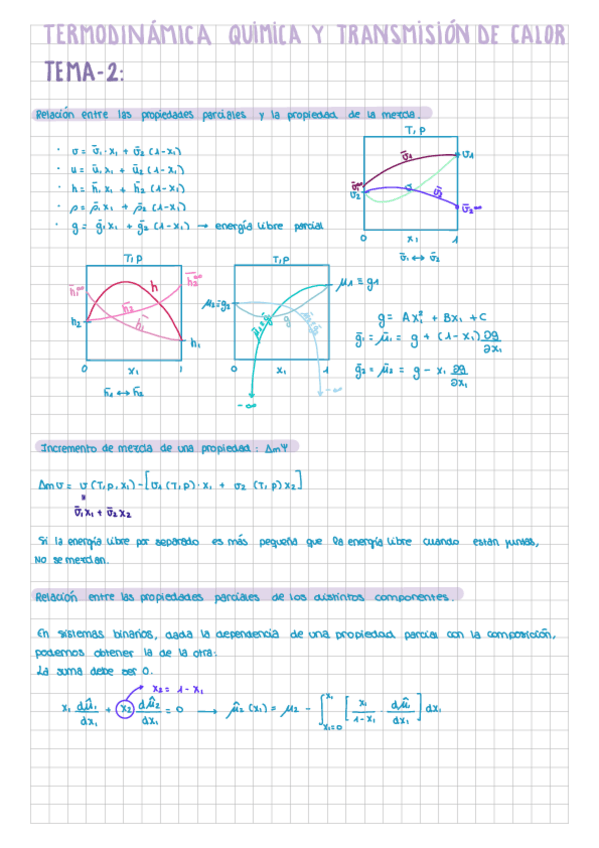 TERMODINÁMICA QUÍMICA Y TRANSMISIÓN DE CALOR
TEMA-2:
Relación entre las propiedades parciales y la propiedad de la mezcla.
· v = v̄₁·x₁ + v̄₂(1-x₁)
· u = ū₁x₁ + ū₂(1-x₁)
· h = h̄₁x₁ + h̄₂(1-x₁)
· ρ = ρ̄₁x₁ + ρ̄₂(1-x₁)
· g = ḡ₁x₁ + ḡ₂(1-x₁) → energía libre parcial
T,p
v̄₁
v₁
v̄₁∞
v₂
v
v̄₂
v̄₂∞
0 x₁ 1
v̄₁ ↔ v̄₂
T,p
h̄₁∞
h
h̄₂∞
h₂
h̄₂
h̄₁
h₁
0 x₁ 1
h̄₁ ↔ h̄₂
T,p
μ₂=g₂
μ₁ ≡ g₁
g
0 x₁ 1
-∞
-∞
g = Ax₁² + Bx₁ + C
ḡ₁ = μ̄₁ = g + (1-x₁) ∂g/∂x₁
ḡ₂ = μ̄₂ = g - x₁ ∂g/∂x₁
Incremento de mezcla de una propiedad: ΔmΨ
Δmv = v(T,p,x₁) - [v₁(T,p)·x₁ + v₂(T,p)x₂]
v̄₁x₁ + v̄₂x₂
Si la energía libre por separado es más pequeña que la energía libre cuando están juntas,
no se mezclan.
Relación entre las propiedades parciales de los distintos componentes.
En sistemas binarios, dada la dependencia de una propiedad parcial con la composición,
podemos obtener la de la otra:
La suma debe ser 0.
x₂ = 1-x₁
x₁ dμ̂₁/dx₁ + x₂ dμ̂₂/dx₁ = 0 → μ̂₂(x₁) = μ₂ - ∫_{x₁=0}^{x₁} [x₁/(1-x₁) · dμ̂₁/dx₁] dx₁